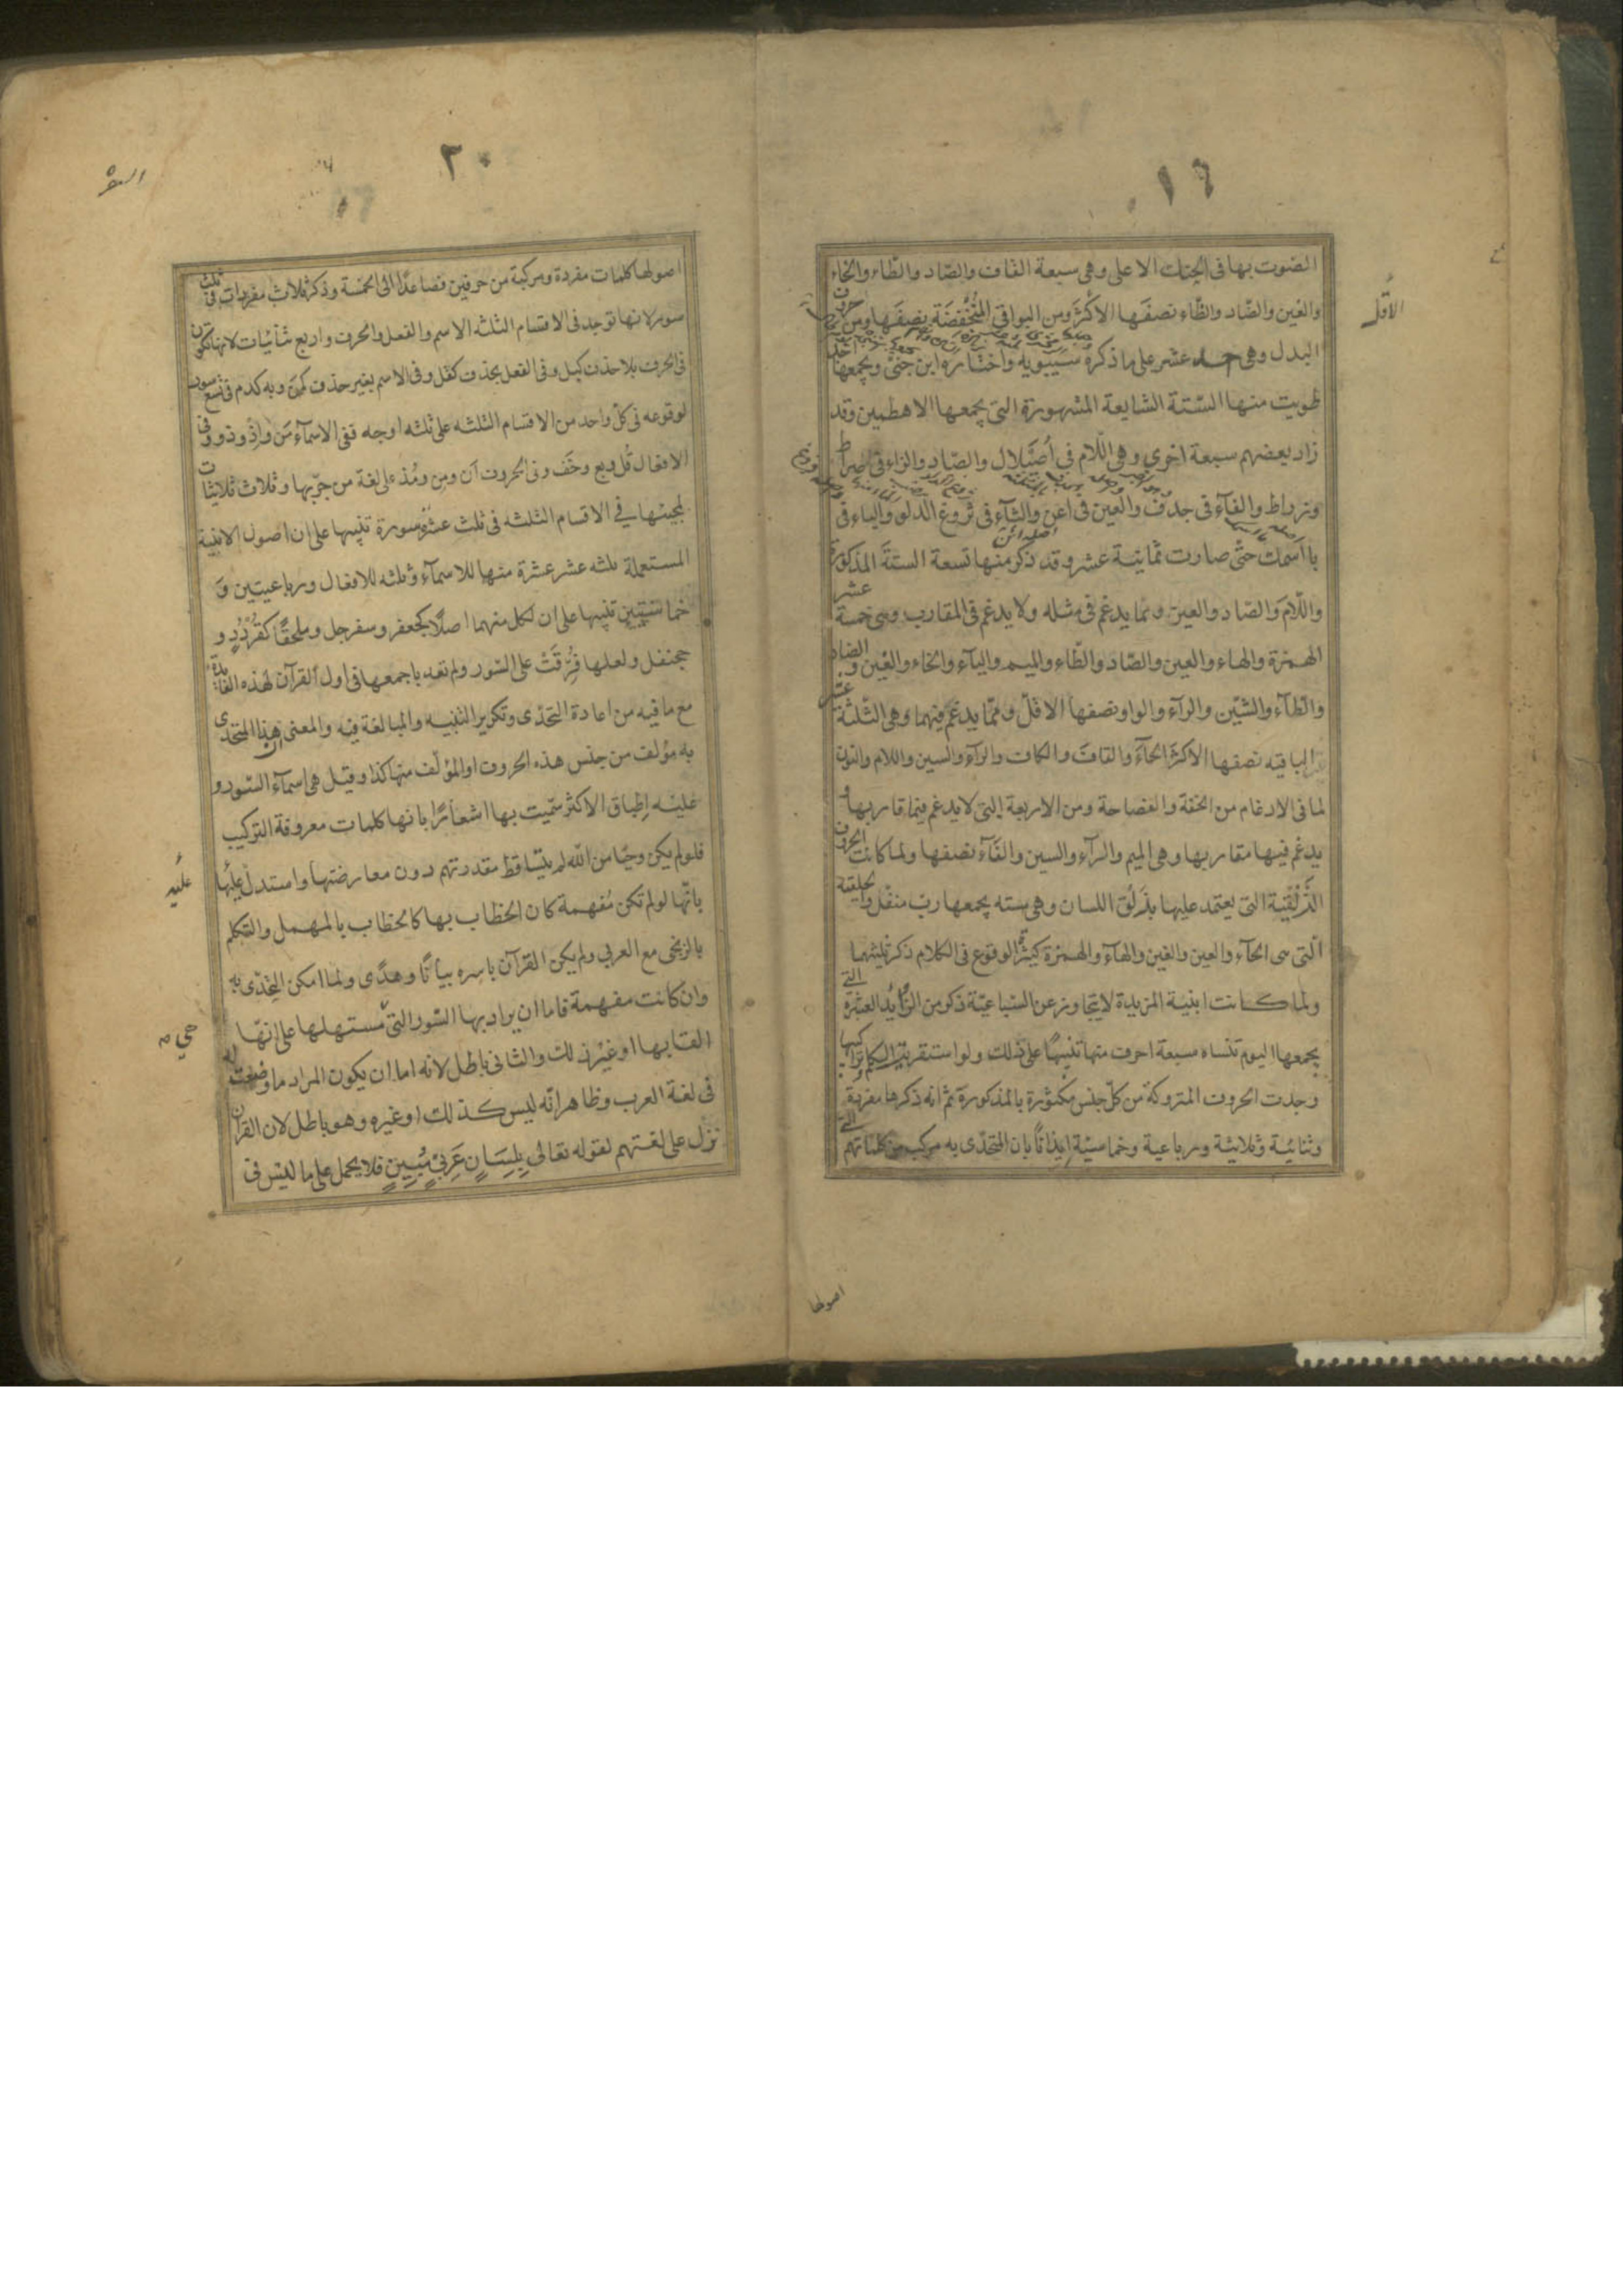 ١٦
الصوت بها فى الحنك الاعلى وهى سبعة القاف والصاد والطاء والخاء
والغين والضاد والظاء نصفها الاكثر ومن البواقى المنخفضة نصفها ومن حروف
الاقل
البدل وهى احد عشر على ما ذكره سيبويه واختاره ابن جنى ويجمعها اجد
طويت منها الستة الشايعة المشهورة التى يجمعها اهطمين وقد
زاد بعضهم سبعة اخرى وهى اللام فى اصيلال والصاد والزاء فى صراط
وزراط والفآء فى جدف والعين فى اعن والثآء فى ثروغ الدلو والباء فى
اصله أأن
با اسمك حتى صارت ثمانية عشر وقد ذكر منها تسعة الستة المذكورة
واللام والصاد والعين ومما يدغم فى مثله ولا يدغم فى المقارب وهى خمسة عشر
الهمزة والهاء والعين والصاد والطاء والميم واليآء والخاء والغين والضاد
والظآء والشين والرآء والواو نصفها الاقل ومما يدغم فيهما وهى الثلثة عشر
الباقيه نصفها الاكثر الحآء والقاف والكاف والرآء والسين واللام والنون
لما فى الادغام من الخفة والفصاحة ومن الاربعة التى لا يدغم فيما قاربها و
يدغم فيها مقاربها وهى الميم والرآء والسين والفآء نصفها ولما كانت الحروف
الذلقية التى يعتمد عليها بذلق اللسان وهى سته يجمعها رب منفل والحلقية
التى هى الحآء والعين والغين والهآء والهمزة كثيرة الوقوع فى الكلام ذكر ثلثيهما
ولما كانت ابنية المزيدة لا يتجاوز عن السباعية ذكر من الزوايد العشرة التى
يجمعها اليوم تنساه سبعة احرف منها تنبيها على ذلك ولو استقريت الكلم وتراكيبها
وجدت الحروف المتروكة من كل جنس مكثورة بالمذكورة ثم انه ذكرها مفردة
وثنائية وثلاثية ورباعية وخماسية ايذانا بان المتحدى به مركب من كلماتهم التى
اصولها
٢٠
اصولها كلمات مفردة ومركبة من حرفين فصاعدا الى الخمسة وذكر ثلاث مفردات فى ثلث
سور لانها توجد فى الاقسام الثلثه الاسم والفعل والحرف واربع ثنائيات لانها تكون
فى الحرف بلا حذف كبل وفى الفعل بحذف كقل وفى الاسم بغير حذف كمن وبه كدم فى تسع سور
لوقوعه فى كل واحد من الاقسام الثلثه على ثلثه اوجه ففى الاسمآء من واذ وذو وفى
الافعال قل وبع وخف وفى الحروف ان ومن ومذ على لغة من جر بها وثلاث ثلاثيات
لمجيئها فى الاقسام الثلثه فى ثلث عشرة سورة تنبيها على ان اصول الابنية
المستعملة ثلثه عشر عشرة منها للاسمآء وثلثه للافعال ورباعيتين و
خماسيتين تنبيها على ان لكل منهما اصلا كجعفر وسفرجل وملحقا كقردد و
جحنفل ولعلها فرقت على السور ولم تعد باجمعها فى اول القرآن لهذه الفايدة
مع ما فيه من اعادة التحدى وتكرير التنبيه والمبالغة فيه والمعنى ان هذا المتحدى
به مؤلف من جنس هذه الحروف او المؤلف منها كذا وقيل هى اسمآء السور و
عليه اطباق الاكثر سميت بها اشعارا بانها كلمات معروفة التركيب
فلو لم يكن وحيا من الله لم يتساقط مقدرتهم دون معارضتها واستدل عليها
عليه
بانها لو لم تكن مفهمة كان الخطاب بها كالخطاب بالمهمل والتكلم
بالزنجى مع العربي ولم يكن القرآن باسره بيانا وهدى ولما امكن التحدى به
وان كانت مفهمة فاما ان يراد بها السور التى مستهلها على انها
القابها او غير ذلك والثانى باطل لانه اما ان يكون المراد ما وضعت له
فى لغة العرب وظاهر انه ليس كذلك او غيره وهو باطل لان القرآن
نزل على لغتهم لقوله تعالى بلسان عربى مبين فلا يحمل على ما ليس فى